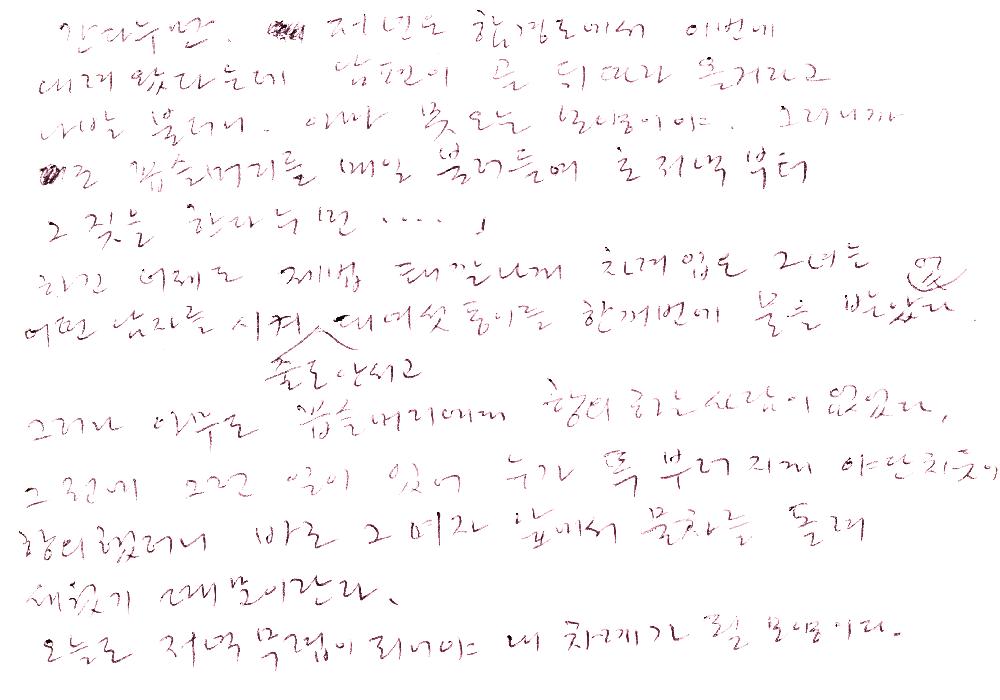 간다누만. 저년은 함경도에서 이번에
내려왔다는데 남편이 곧 뒤따라 올거라고
나발 불더니. 아마 못오는 모양이야. 그러니까
곱슬머리를 매일 불러들여 초저녁부터
그 짓을 한다누만 ····」
하긴 어제도 제법 때깔나게 차려입은 그녀는
어떤 남자를 시켜 줄도 안서고 대여섯 통이를 한꺼번에 물을 받았었다.
그러나 아무도 곱슬머리에게 항의하는 사람이 없었다.
그전에 그런 일이 있어 누가 똑 부러지게 야단치듯이
항의했더니 바로 그 여자 앞에서 물차를 돌려
세웠기 때문이란다.
오늘도 저녁무렵이 되어야 내 차례가 될 모양이다.